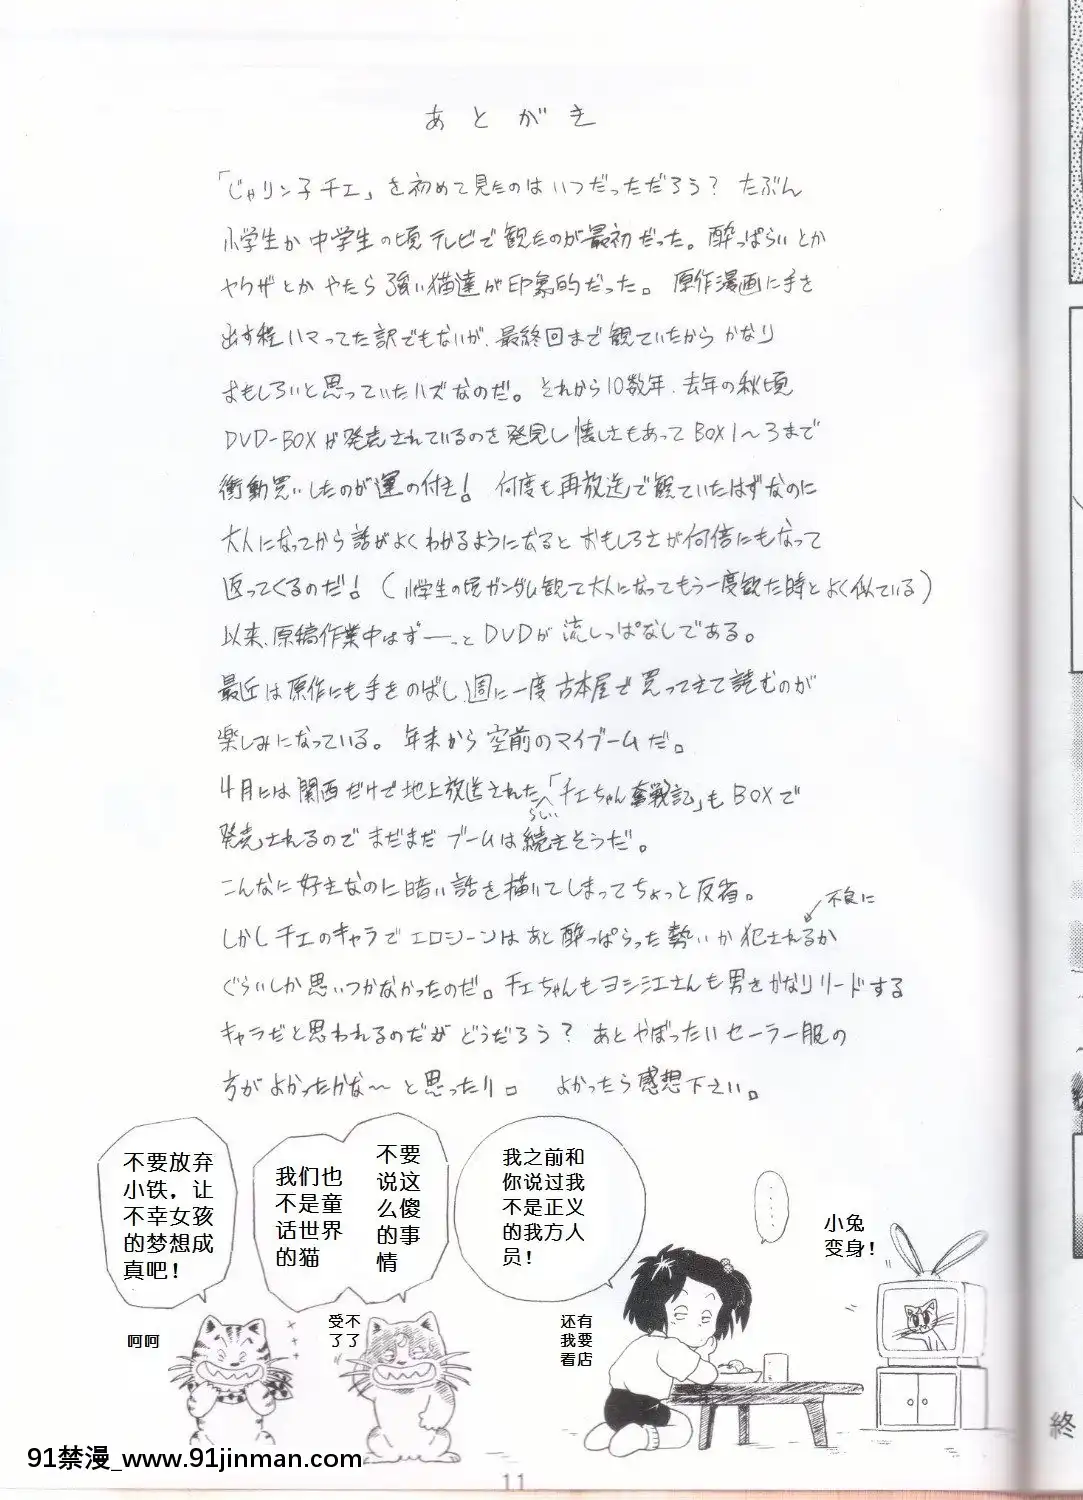 あとがき
「じゃリン子チエ」を初めて見たのはいつだっただろう？ たぶん
小学生か中学生の頃テレビで観たのが最初だった。酔っぱらいとか
ヤクザとかやたら強い猫達が印象的だった。原作漫画に手を
出す程ハマってた訳でもないが、最終回まで観ていたからかなり
おもしろいと思っていたハズなのだ。それから10数年、去年の秋頃
DVD-BOXが発売されているのを発見し懐しさもあってBOX1〜3まで
衝動買いしたのが運の付き！ 何度も再放送で観ていたはずなのに
大人になってから話がよくわかるようになるとおもしろさが何倍にもなって
返ってくるのだ！（小学生の頃ガンダム観て大人になってもう一度観た時とよく似ている）
以来、原稿作業中はずーーっとDVDが流しっぱなしである。
最近は原作にも手をのばし週に一度古本屋で買ってきて読むのが
楽しみになっている。年末から空前のマイブームだ。
4月には関西だけで地上放送された「チエちゃん奮戦記」もBOXで
らしい
発売されるのでまだまだブームは続きそうだ。
こんなに好きなのに暗い話を描いてしまってちょっと反省。
よかったら感想下さい。
不要放弃
小铁，让
不幸女孩
的梦想成
真吧！
我们也
不是童
话世界
的猫
不要
说这
么傻
的事
情
我之前和
你说过我
不是正义
的我方人
员！
……
小兔
变身！
呵呵
受不
了了
还有
我要
看店
終
91禁漫_www.91jinman.com
11